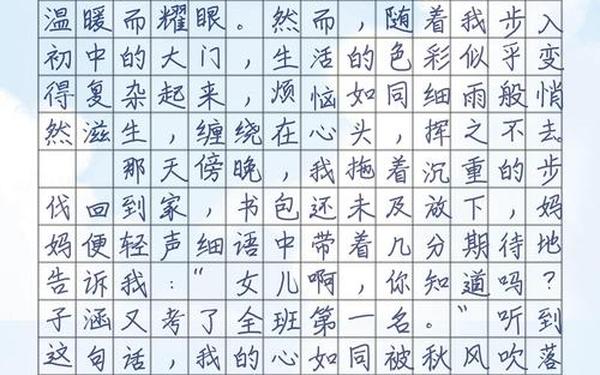 温暖而耀眼。然而，随着我步入
初中的大门，生活的色彩似乎变
得复杂起来，烦恼如同细雨般悄
然滋生，缠绕在心头，挥之不去。
那天傍晚，我拖着沉重的步
伐回到家，书包还未及放下，妈
妈便轻声细语中带着几分期待地
告诉我：“女儿啊，你知道吗？
子涵又考了全班第一名。”听到
这句话，我的心如同被秋风吹落